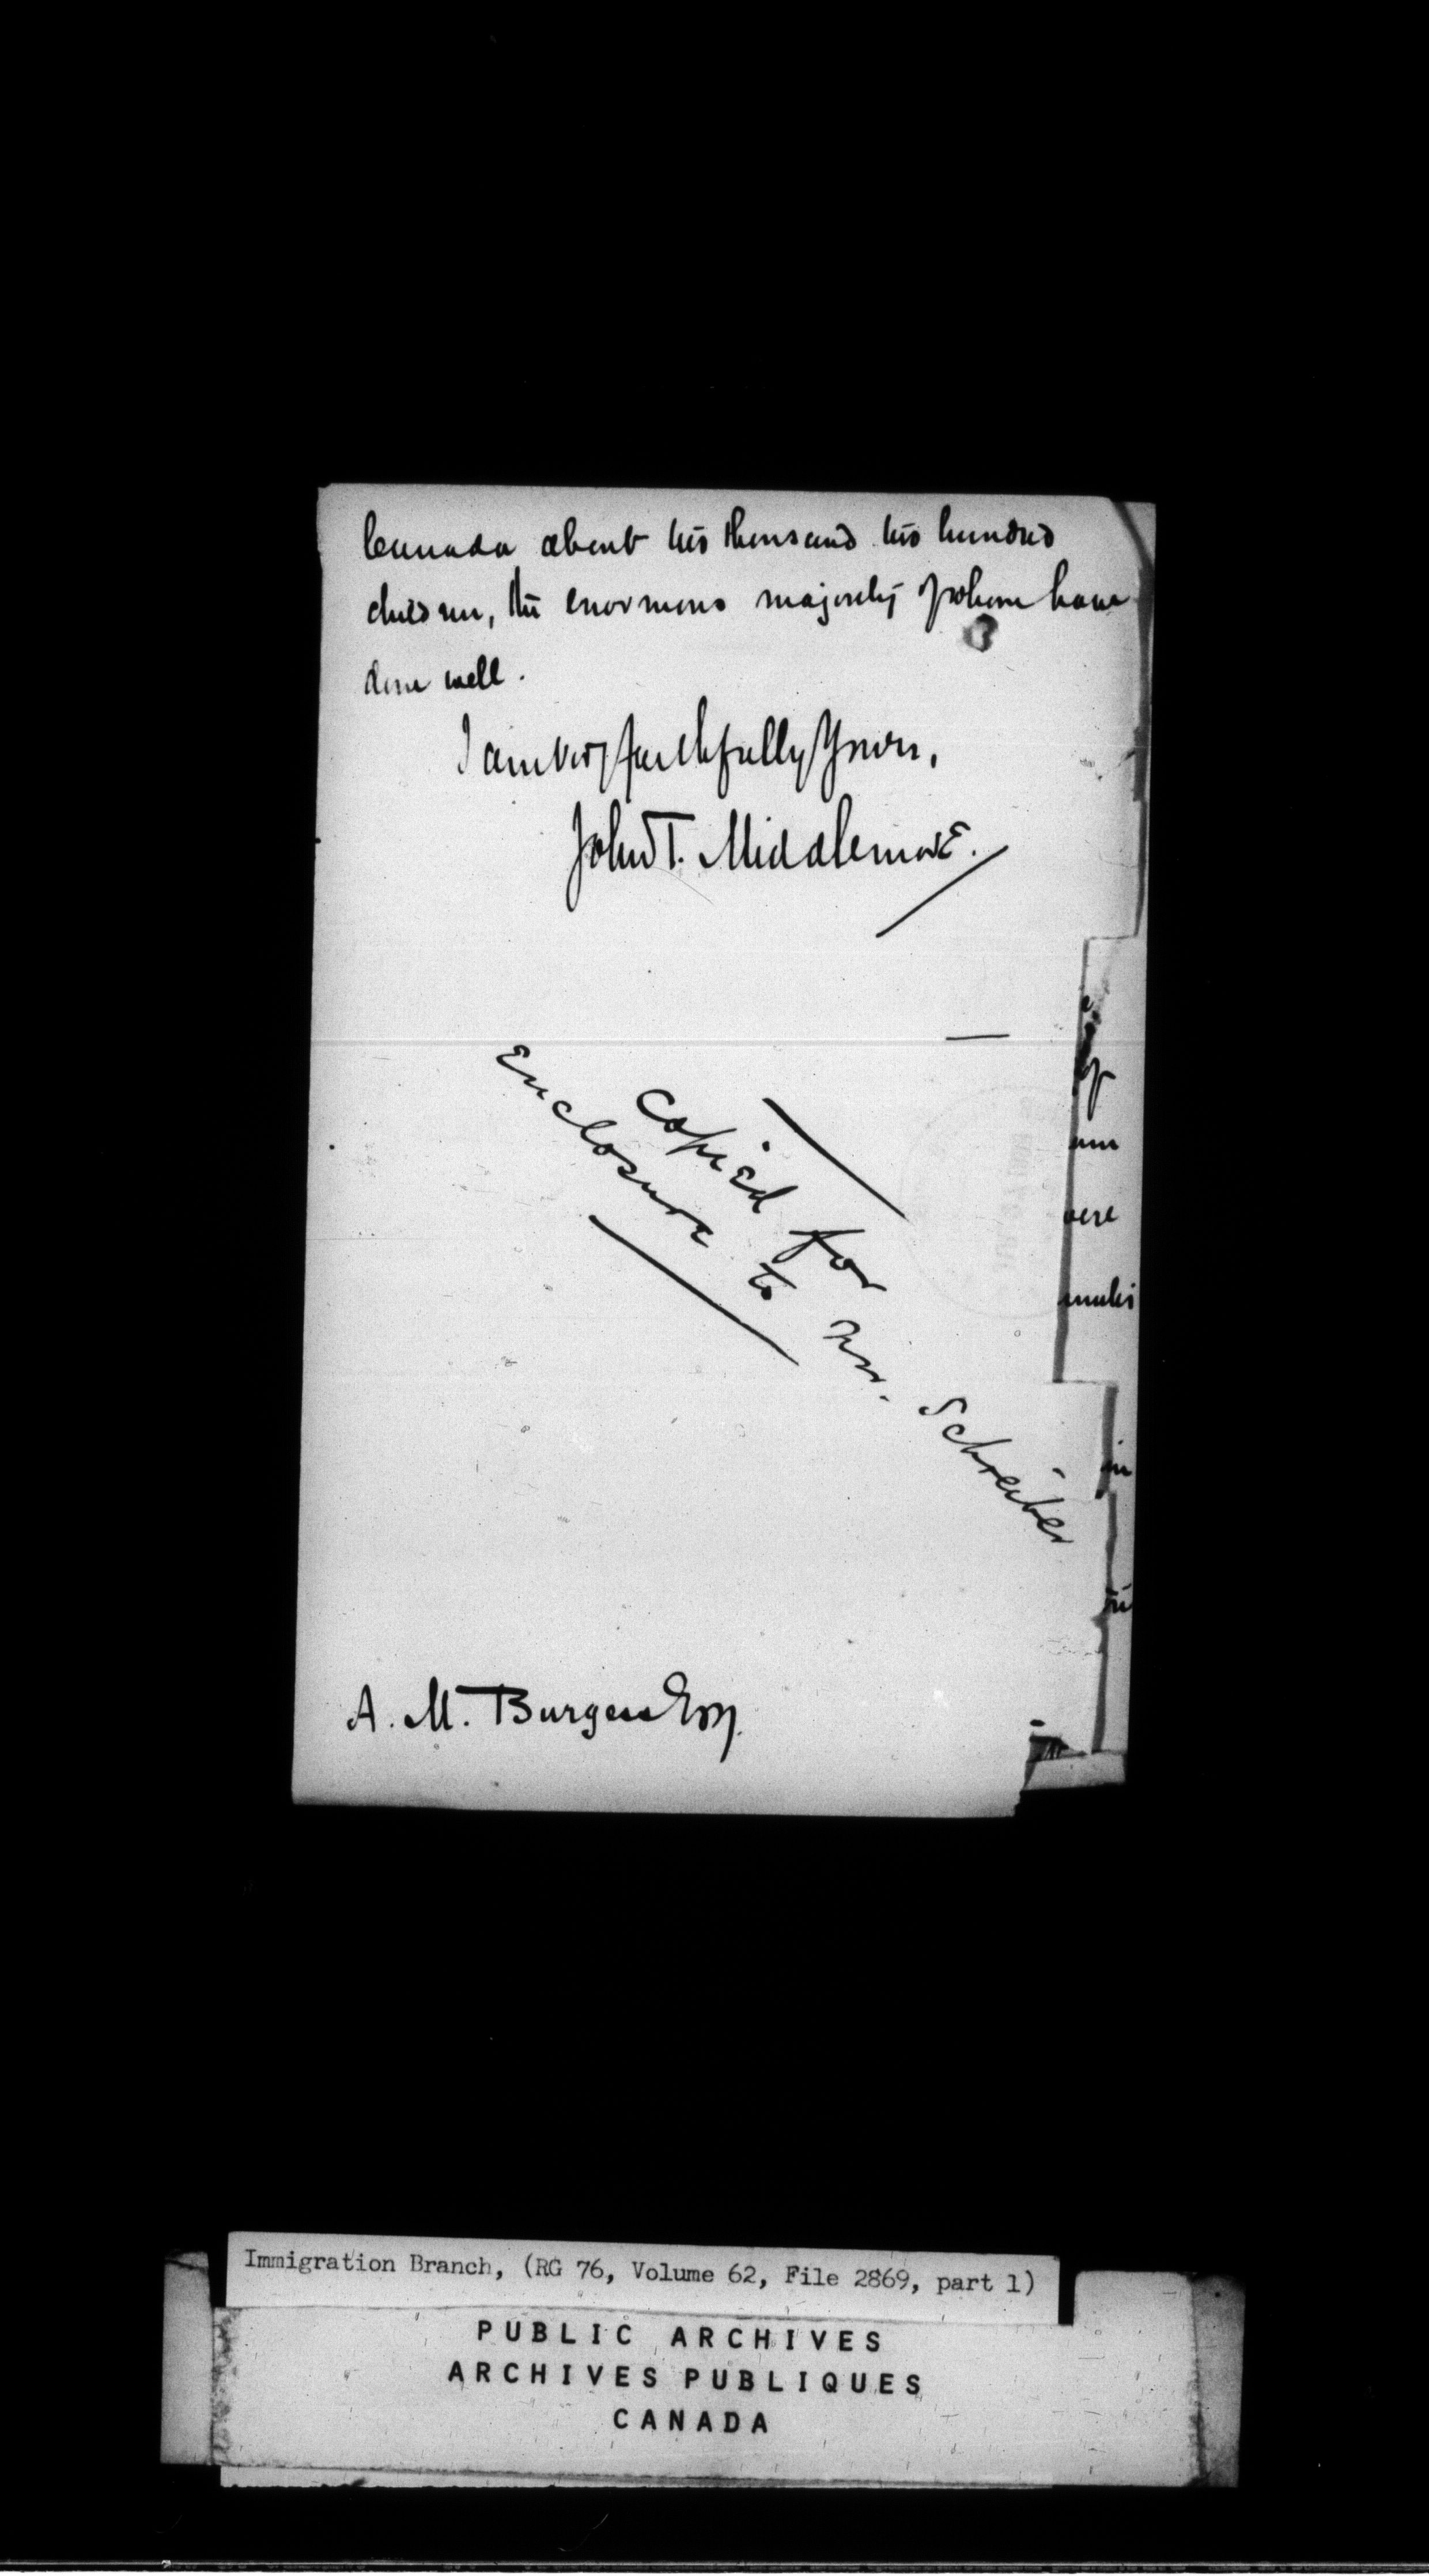 Canada about two thousand two hundred
children, the enormous majority of whom have
done well.
I am very faithfully Yours,
John T. Middlemore.
Copied for
Enclosure to Mr. Schreiber
A. M. Burgess Esq.
of
were
in
Immigration Branch, (RG 76, Volume 62, File 2869, part 1)
PUBLIC ARCHIVES
ARCHIVES PUBLIQUES
CANADA